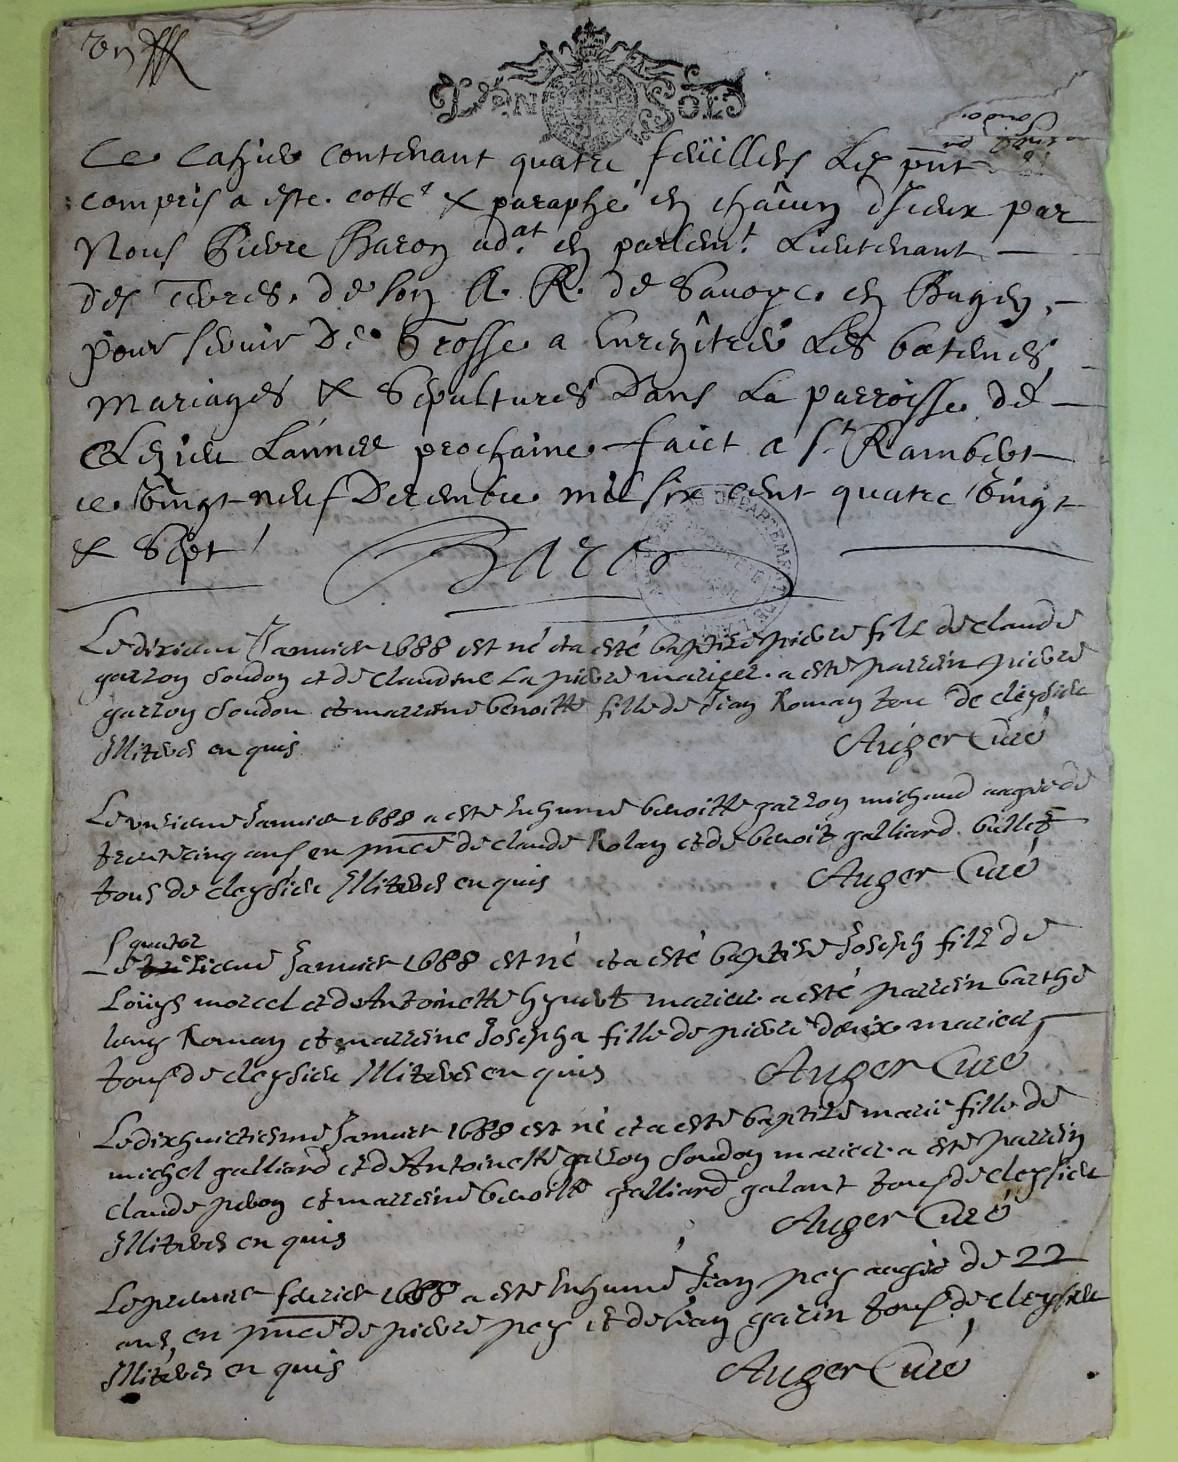 Un
UN SOL
Ce Cahier contenant quatre feüilletz Le pnt
compris a esté cotté & paraphé en châcun d'iceux par
Nous Pierre Baron ad.at en parlem.t Lieutenant
des terres de son A. R. de Savoye en Bugey,
pour servir De Grosse a Enregîtrer Les batemes,
Mariages & Sepultures Dans La parroisse de
Cleyzieu L'année prochaine faict a St Rambert
ce Vingt neuf Decembre mil six cent quatre Vingt
& Sept
Baron
Le dixieme Janvier 1688 est né et a esté baptise pierre filz de claude
garron doudon et de claudine La pierre mariez. a esté parrein pierre
garron doudon et marreine benoitte fille de Jean Roman tou de cleysieu
Illiterés enquis Auger Curé
Le unzieme Janvier 1688 a esté Inhumé benoitte garron michaud aagée de
trente cinq ans, en pnce de claude Rolan et de benoit galliard billet
tous de cleysieu Illiterés enquis Auger Curé
quator
Le zieme Janvier 1688 est né et a esté baptisé Joseph filz de
Loüys morcel et de Antoinette mariez. a esté parrein barthe
lemy Roman et marreine Josepha fille de pierre mariez,
tous de cleysieu Illiterés enquis Auger Curé
Le dixhuictiesme Janvier 1688 est né et a esté baptizé marie fille de
michel galliard et de Antoinette garron doudon mariez. a esté parrein
claude et marreine benoitte galliard galant tous de cleysieu
Illiterés enquis Auger Curé
Le premier febvrier 1688 a esté Inhumé Jean pey aagé de 22
ans, en pnce de pierre pey et de Jean garin tous de cleysieu
Illiterés enquis Auger Curé